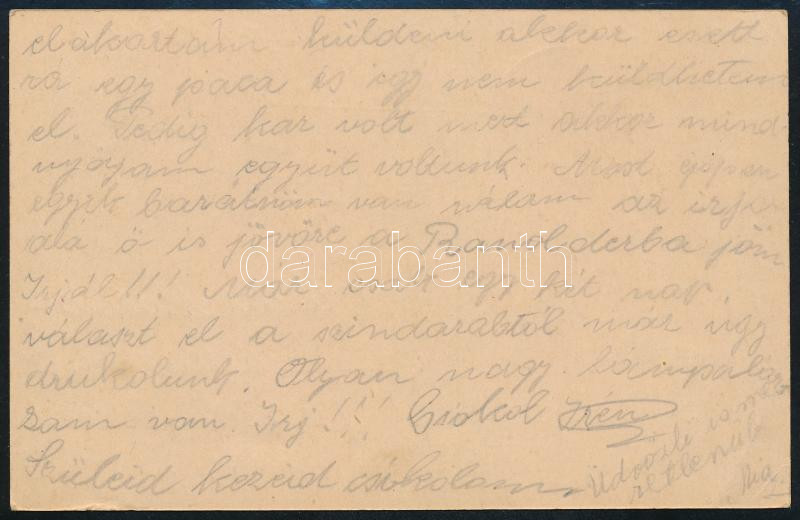 el akartam küldeni akkor esett
rá egy paca és így nem küldhetem
el. Pedig kár volt mert akkor mind-
nyájan együt voltunk. Most éppen
egyik barátnőm van nálam az írja
alá ő is jövőre a Ranolderba jön
Irjál!!! Már csak egy két nap
választ el a szindarabtól már úgy
drukolunk. Olyan nagy lámpaláz-
zam van. Irj!!! Csókol Irén
Szüleid kezeid csókolom
Üdvözli ismeretlenül
Mia
darabanth